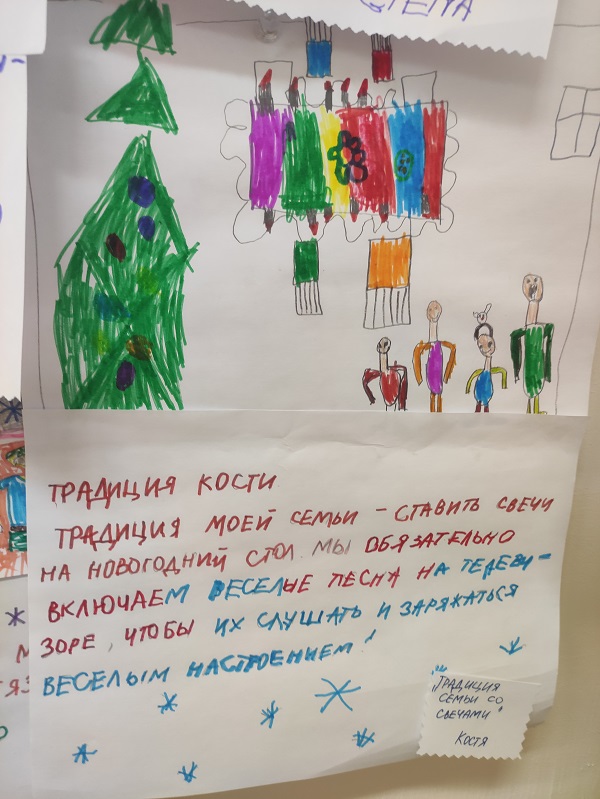 ТРАДИЦИЯ КОСТИ
ТРАДИЦИЯ МОЕЙ СЕМЬИ – СТАВИТЬ СВЕЧИ
НА НОВОГОДНИЙ СТОЛ. МЫ ОБЯЗАТЕЛЬНО
ВКЛЮЧАЕМ ВЕСЕЛЫЕ ПЕСНА НА ТЕЛЕВИ-
ЗОРЕ, ЧТОБЫ ИХ СЛУШАТЬ И ЗАРЯЖАТЬСЯ
ВЕСЕЛЫМ НАСТРОЕНИЕМ!
"ТРАДИЦИЯ
СЕМЬИ СО
СВЕЧАМИ"
КОСТЯ